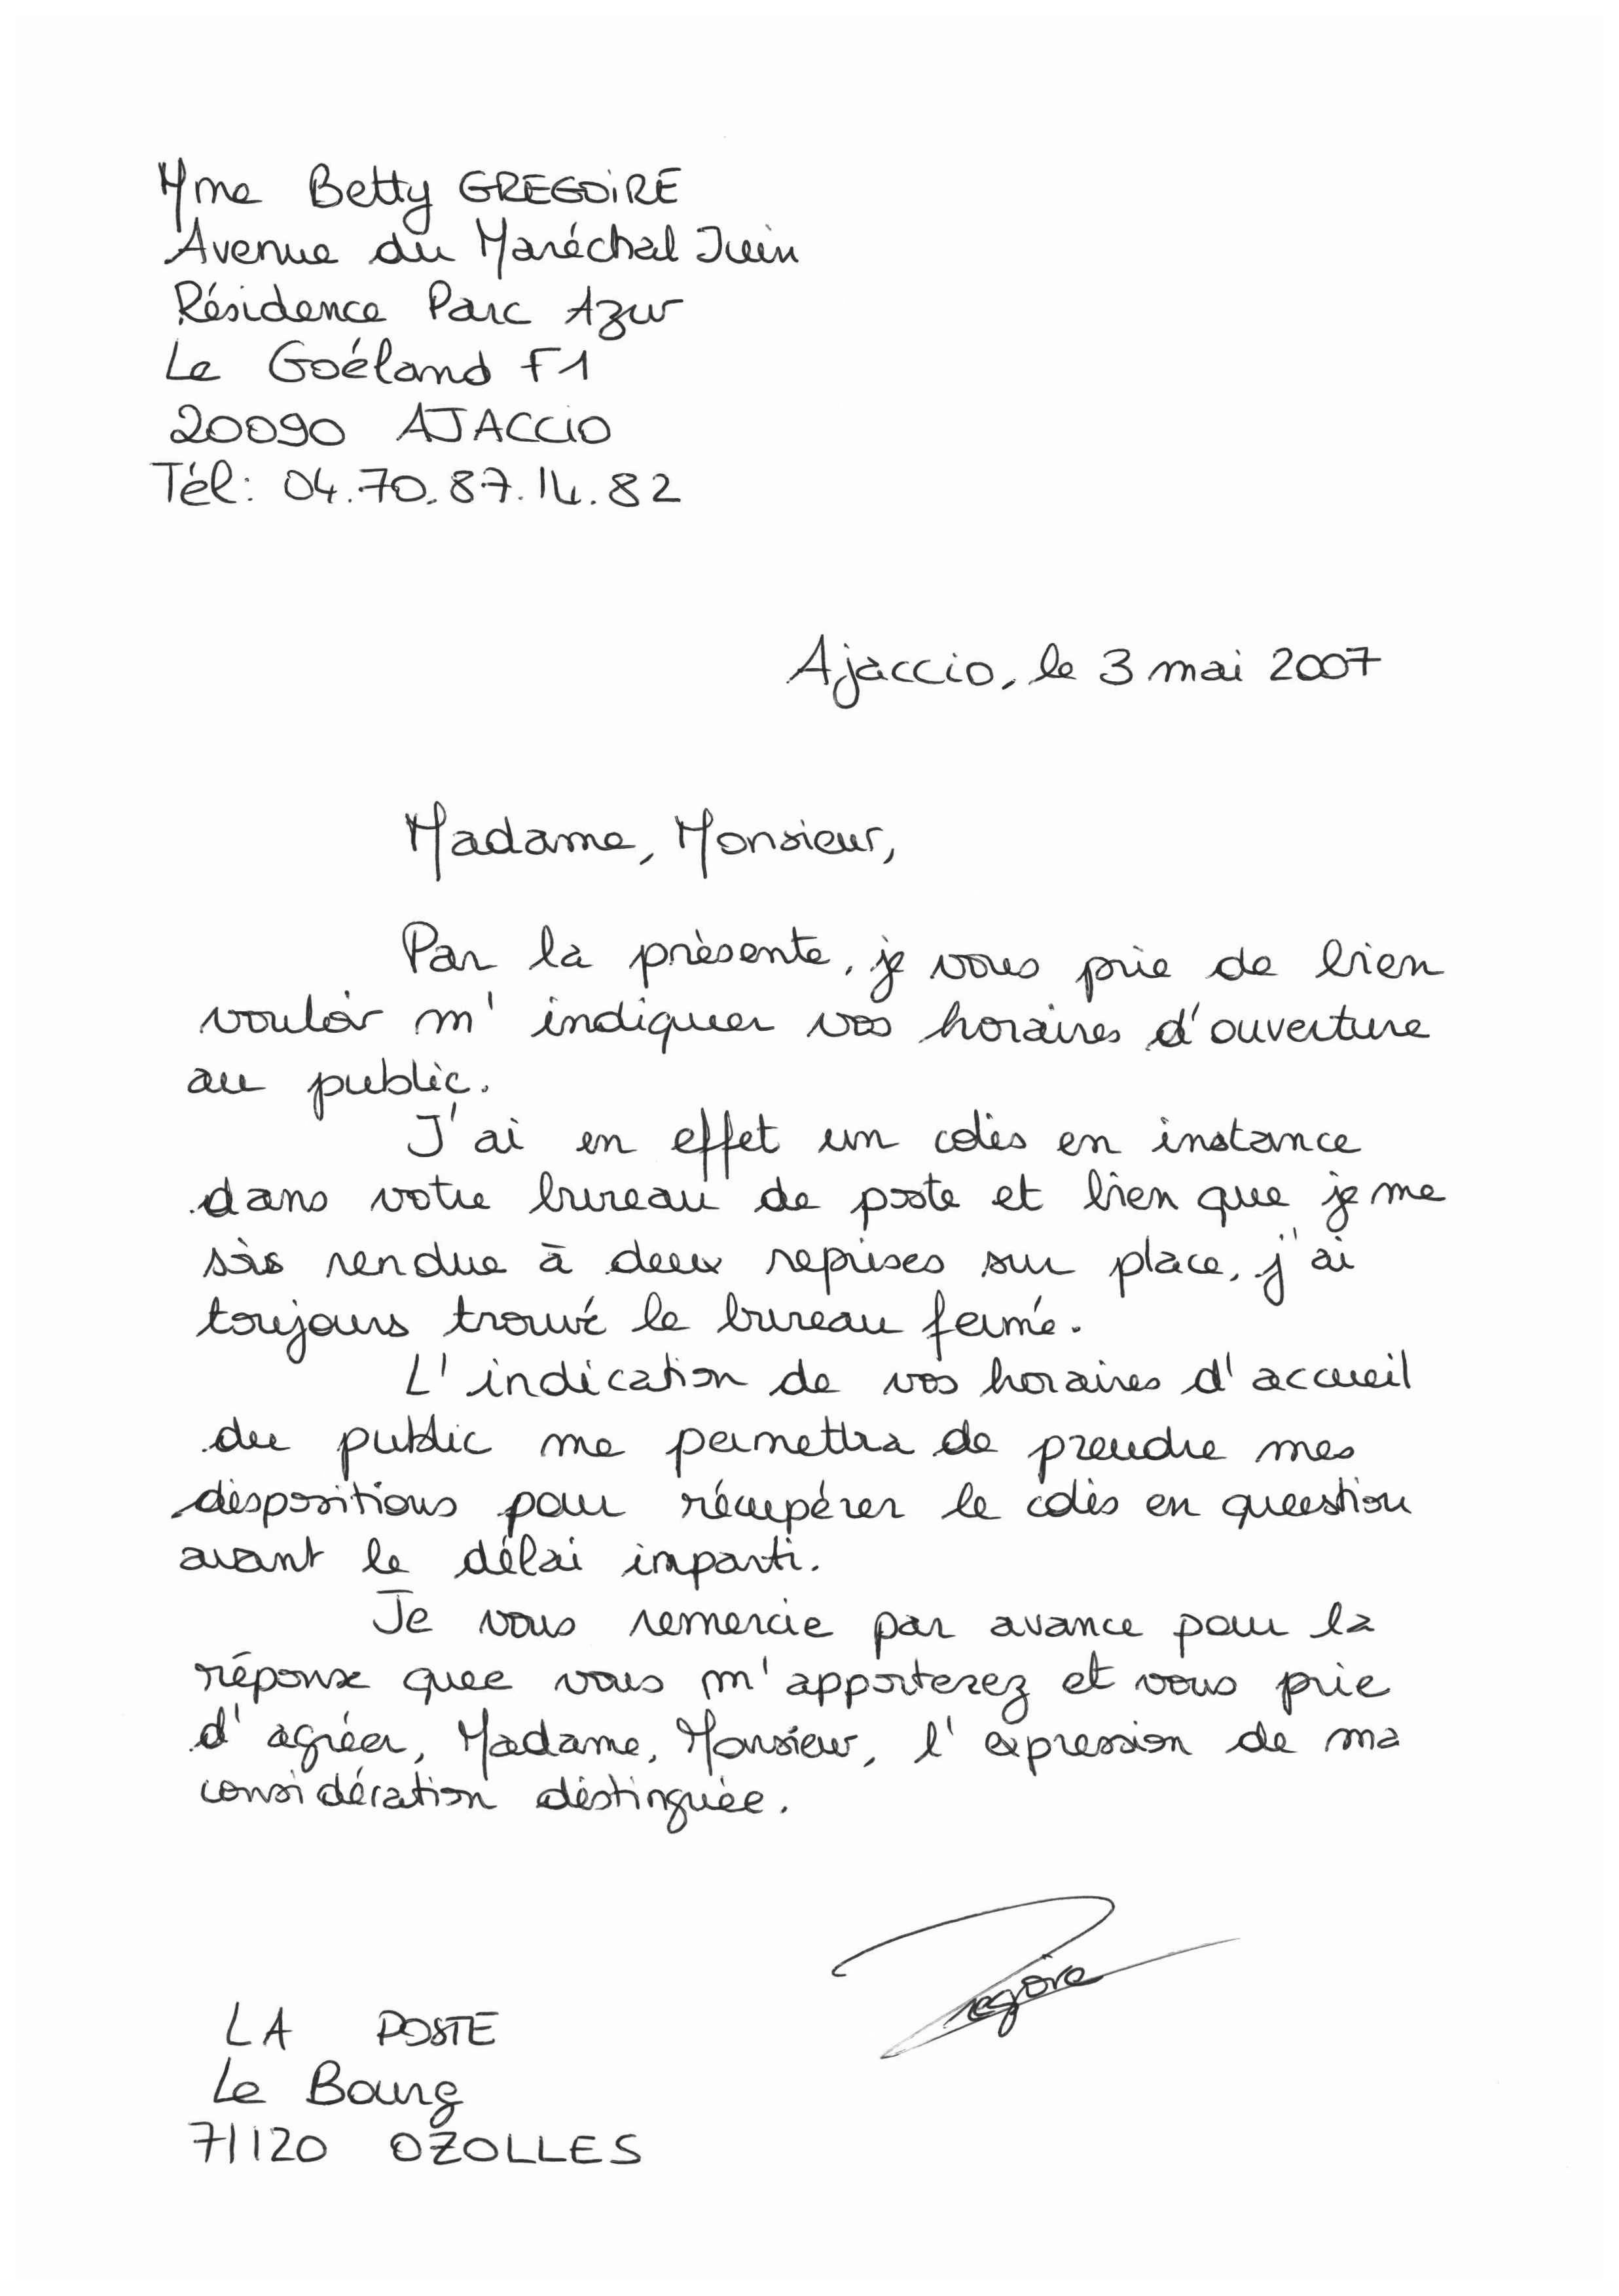 Mme Betty GREGOIRE
Avenue du Maréchal Juin
Résidence Parc Azur
Le Goéland F1
20090 AJACCIO
Tél: 04.70.87.14.82
Ajaccio, le 3 mai 2007
Madame, Monsieur,
Par la présente, je vous prie de bien
vouloir m'indiquer vos horaires d'ouverture
au public.
J'ai en effet un colis en instance
dans votre bureau de poste et bien que je me
sois rendue à deux reprises sur place, j'ai
toujours trouvé le bureau fermé.
L'indication de vos horaires d'accueil
du public me permettra de prendre mes
dispositions pour récupérer le colis en question
avant le délai imparti.
Je vous remercie par avance pour la
réponse que vous m'apporterez et vous prie
d'agréer, Madame, Monsieur, l'expression de ma
considération distinguée.
Gregoire
LA POSTE
Le Bourg
71120 OZOLLES